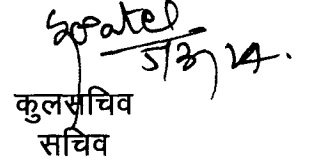 5/3/14.
कुलसचिव
सचिव